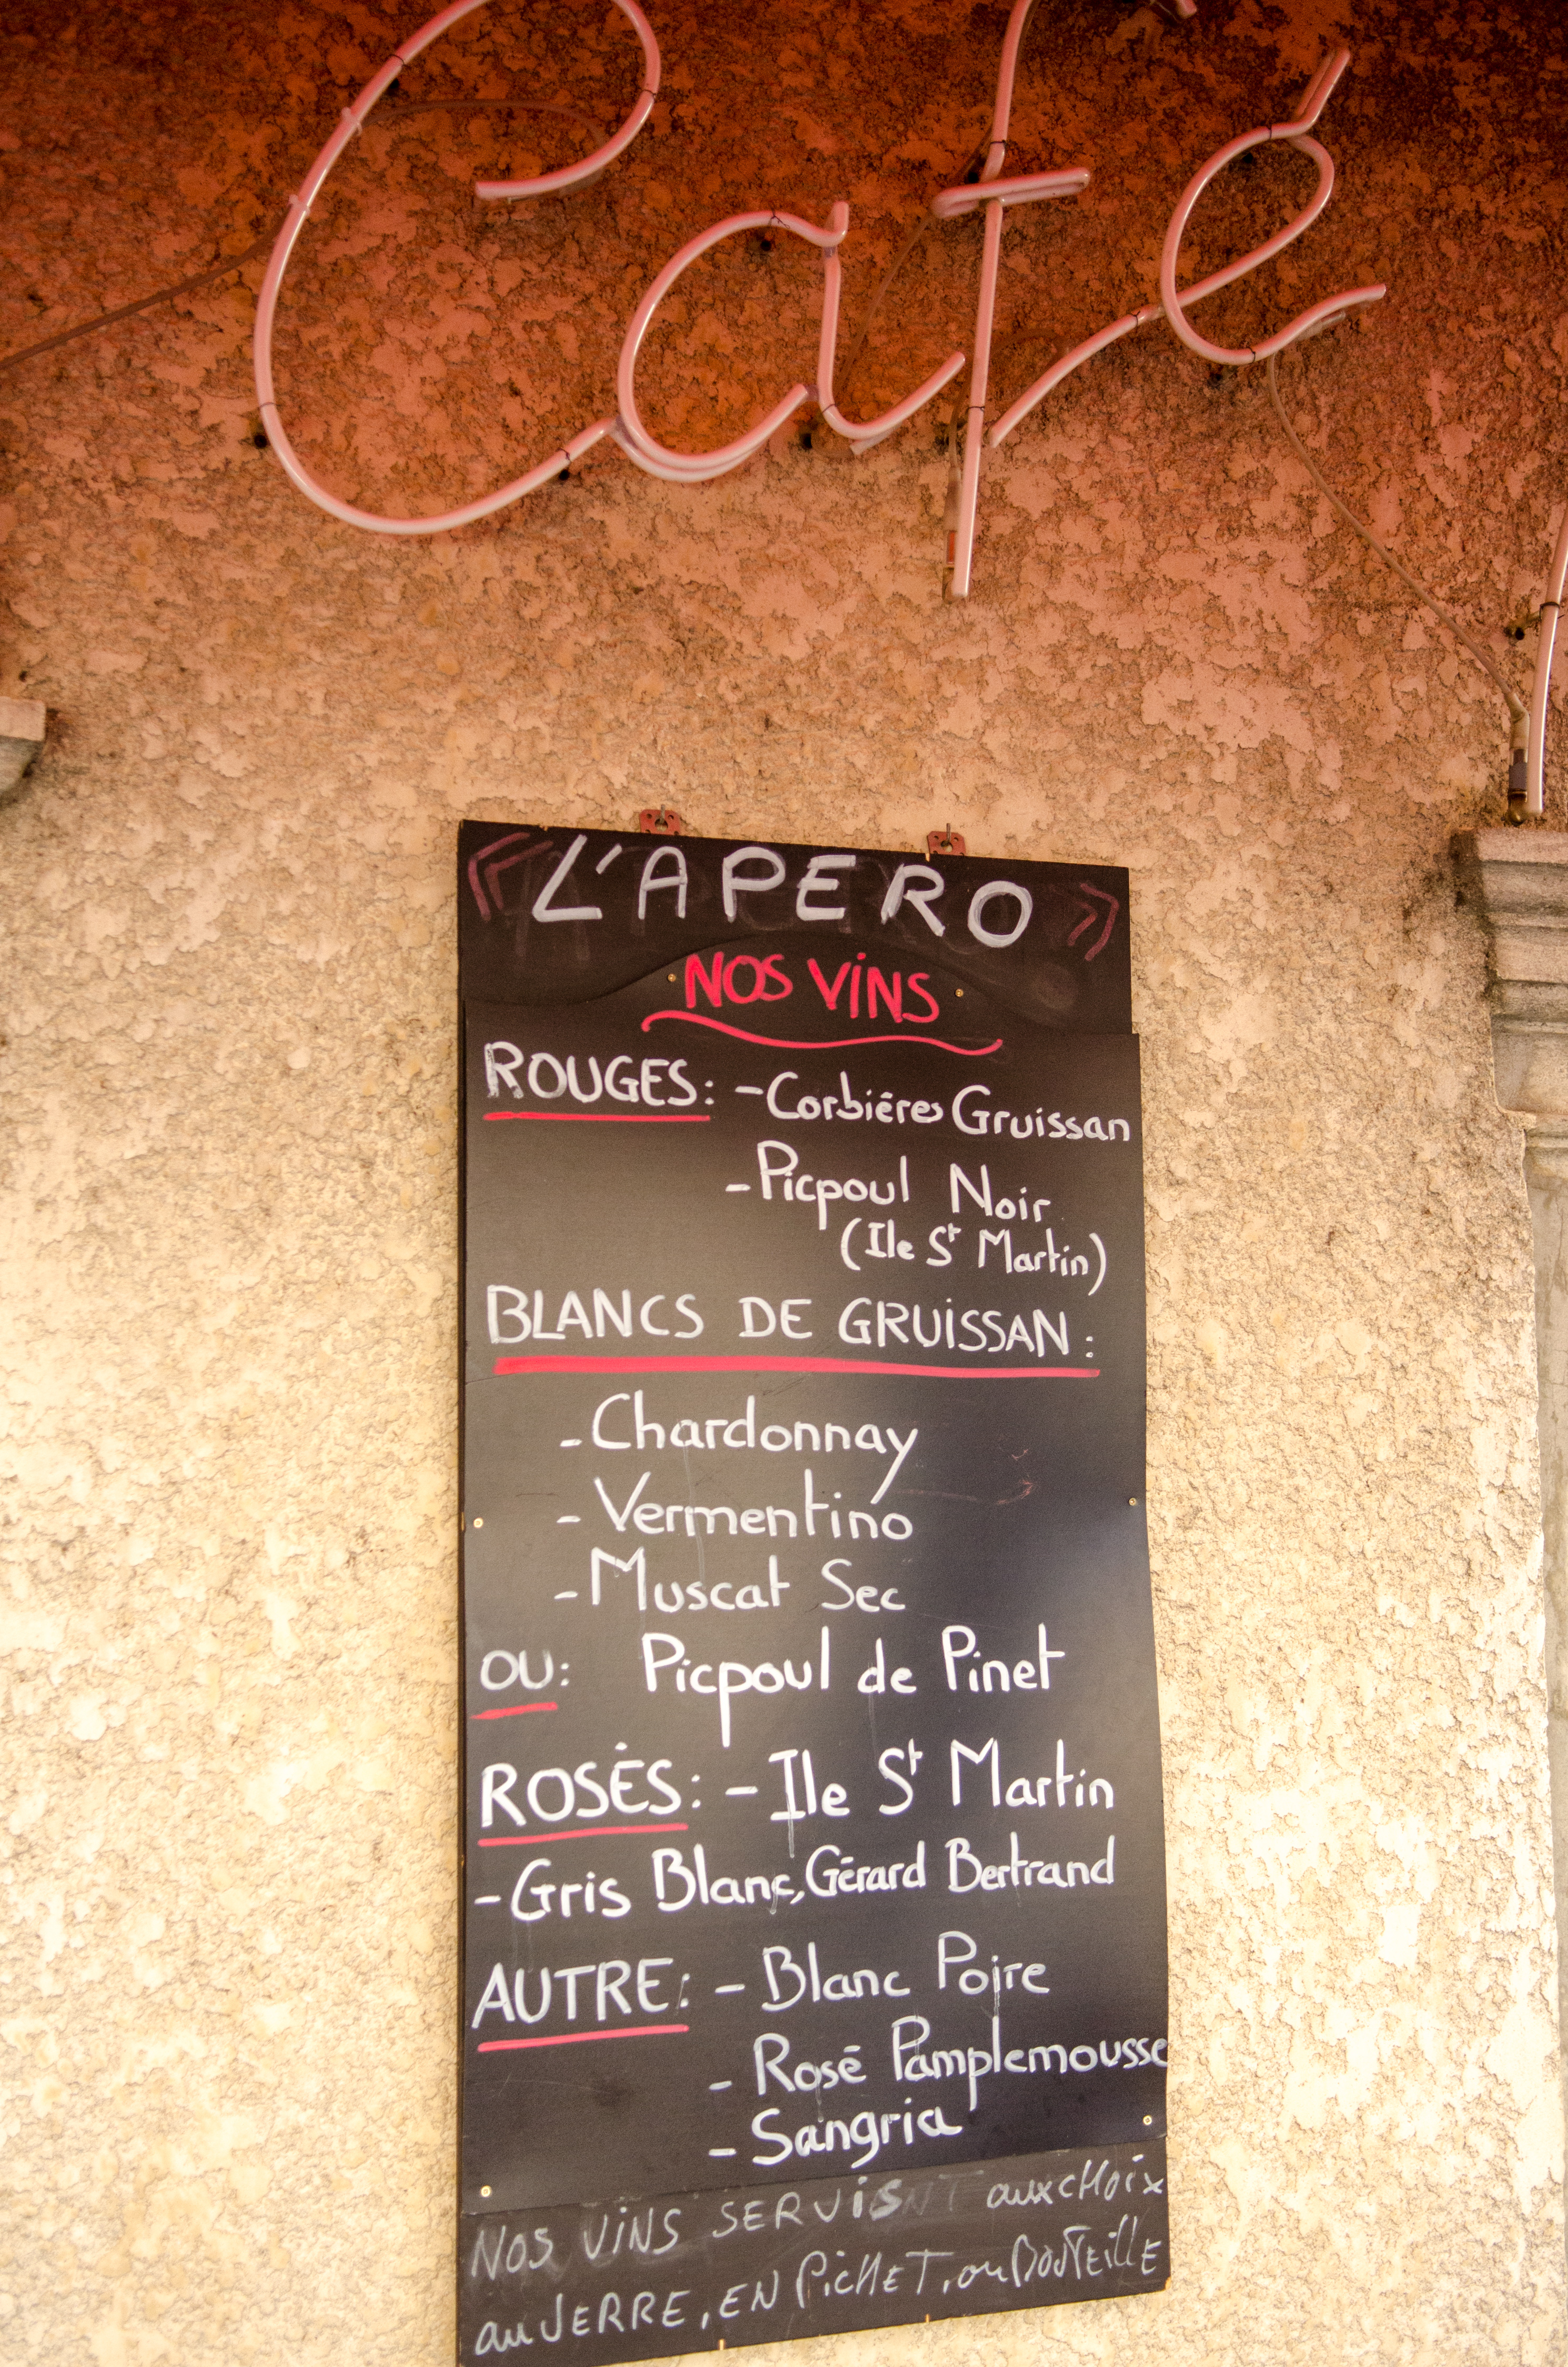 Café
« L'APERO »
NOS VINS
ROUGES: - Corbiéres Gruissan
- Picpoul Noir
(Ile St Martin)
BLANCS DE GRUISSAN:
- Chardonnay
- Vermentino
- Muscat Sec
OU: Picpoul de Pinet
ROSÉS: - Ile St Martin
- Gris Blanc, Gérard Bertrand
AUTRE: - Blanc Poire
- Rosé Pamplemousse
- Sangria
NOS VINS SERVIS aux CHOIX
au VERRE, EN PICHET, ou BOUTEILLE